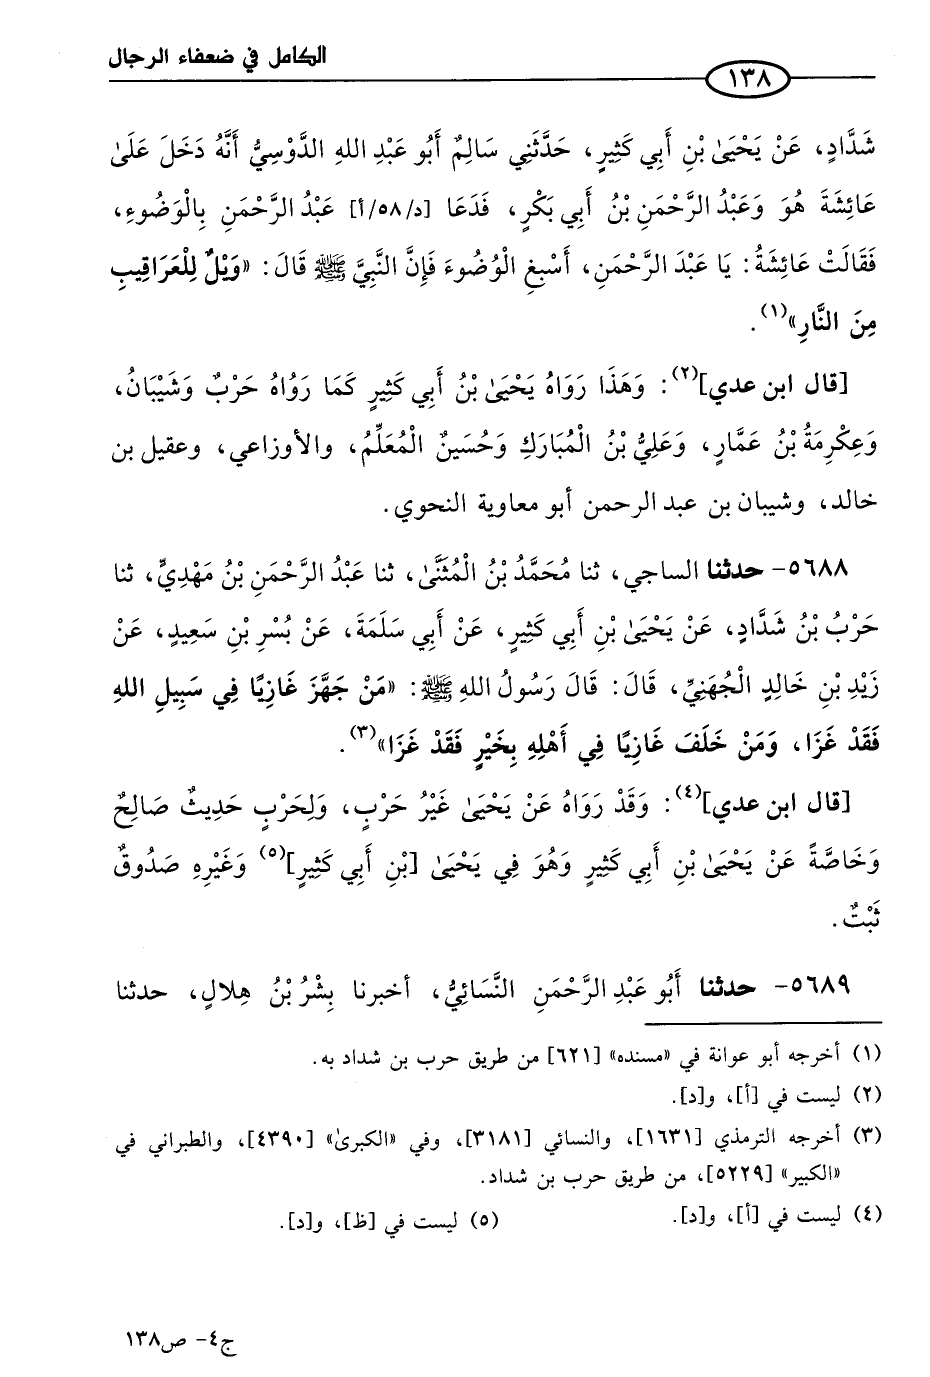 الكامل في ضعفاء الرجال
١٣٨
شَدَّادٍ، عَنْ يَحْيَىٰ بْنِ أَبِي كَثِيرٍ، حَدَّثَنِي سَالِمٌ أَبُو عَبْدِ اللهِ الدَّوْسِيُّ أَنَّهُ دَخَلَ عَلَىٰ
عَائِشَةَ هُوَ وَعَبْدُ الرَّحْمَنِ بْنُ أَبِي بَكْرٍ، فَدَعَا [د/٥٨/أ] عَبْدُ الرَّحْمَنِ بِالْوَضُوءِ،
فَقَالَتْ عَائِشَةُ: يَا عَبْدَ الرَّحْمَنِ، أَسْبِغِ الْوُضُوءَ فَإِنَّ النَّبِيَّ ﷺ قَالَ: «وَيْلٌ لِلْعَرَاقِيبِ
مِنَ النَّارِ»(١).
[قال ابن عدي](٢): وَهَذَا رَوَاهُ يَحْيَىٰ بْنُ أَبِي كَثِيرٍ كَمَا رَوُاهُ حَرْبٌ وَشَيْبَانُ،
وَعِكْرِمَةُ بْنُ عَمَّارٍ، وَعَلِيُّ بْنُ الْمُبَارَكِ وَحُسَيْنٌ الْمُعَلِّمُ، والأوزاعي، وعقيل بن
خالد، وشيبان بن عبد الرحمن أبو معاوية النحوي.
٥٦٨٨- حدثنا الساجي، ثنا مُحَمَّدُ بْنُ الْمُثَنَّىٰ، ثنا عَبْدُ الرَّحْمَنِ بْنُ مَهْدِيٍّ، ثنا
حَرْبُ بْنُ شَدَّادٍ، عَنْ يَحْيَىٰ بْنِ أَبِي كَثِيرٍ، عَنْ أَبِي سَلَمَةَ، عَنْ بُسْرِ بْنِ سَعِيدٍ، عَنْ
زَيْدِ بْنِ خَالِدٍ الْجُهَنِيِّ، قَالَ: قَالَ رَسُولُ اللهِ ﷺ: «مَنْ جَهَّزَ غَازِيًا فِي سَبِيلِ اللهِ
فَقَدْ غَزَا، وَمَنْ خَلَفَ غَازِيًا فِي أَهْلِهِ بِخَيْرٍ فَقَدْ غَزَا»(٣).
[قال ابن عدي](٤): وَقَدْ رَوَاهُ عَنْ يَحْيَىٰ غَيْرُ حَرْبٍ، وَلِحَرْبٍ حَدِيثٌ صَالِحٌ
وَخَاصَّةً عَنْ يَحْيَىٰ بْنِ أَبِي كَثِيرٍ وَهُوَ فِي يَحْيَىٰ [بْنِ أَبِي كَثِيرٍ](٥) وَغَيْرِهِ صَدُوقٌ
ثَبْتٌ.
٥٦٨٩- حدثنا أَبُو عَبْدِ الرَّحْمَنِ النَّسَائِيُّ، أخبرنا بِشْرُ بْنُ هِلالٍ، حدثنا
(١) أخرجه أبو عوانة في «مسنده» [٦٢١] من طريق حرب بن شداد به.
(٢) ليست في [أ]، و[د].
(٣) أخرجه الترمذي [١٦٣١]، والنسائي [٣١٨١]، وفي «الكبرىٰ» [٤٣٩٠]، والطبراني في
«الكبير» [٥٢٢٩]، من طريق حرب بن شداد.
(٤) ليست في [أ]، و[د]. (٥) ليست في [ظ]، و[د].
ج٤- ص١٣٨